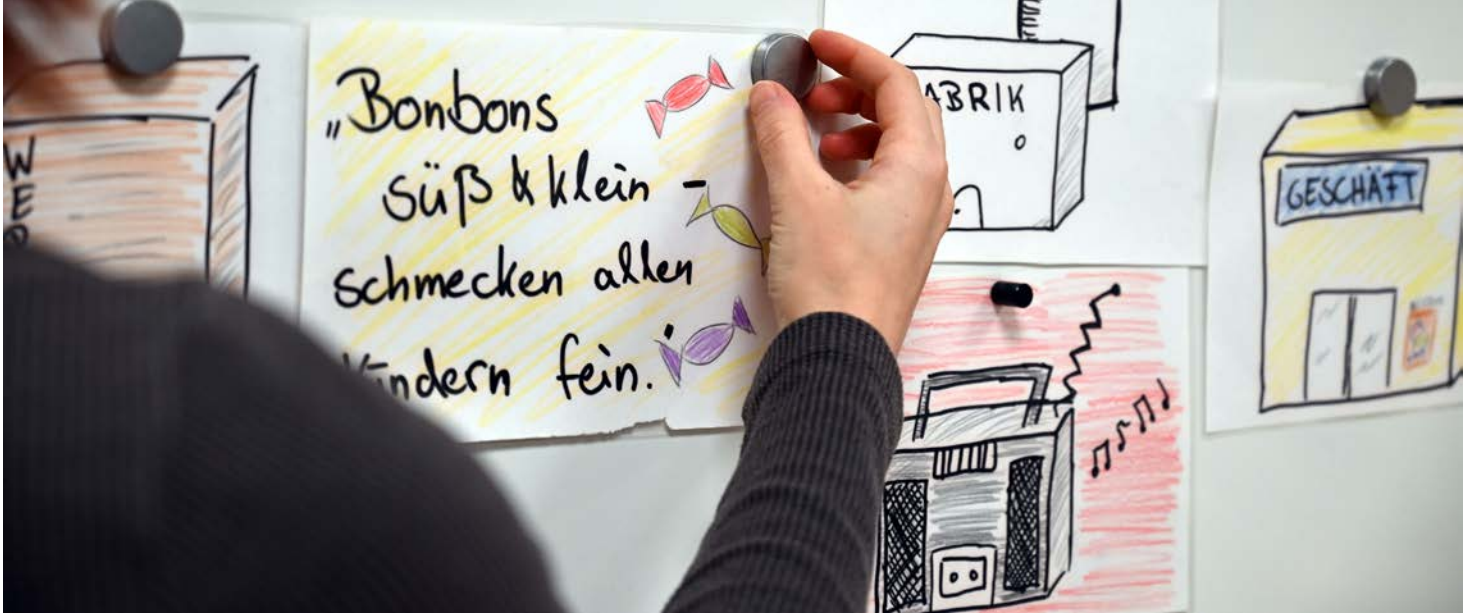 „Bonbons
süß & klein -
schmecken allen
Kindern fein.
ABRIK
GESCHÄFT
WE